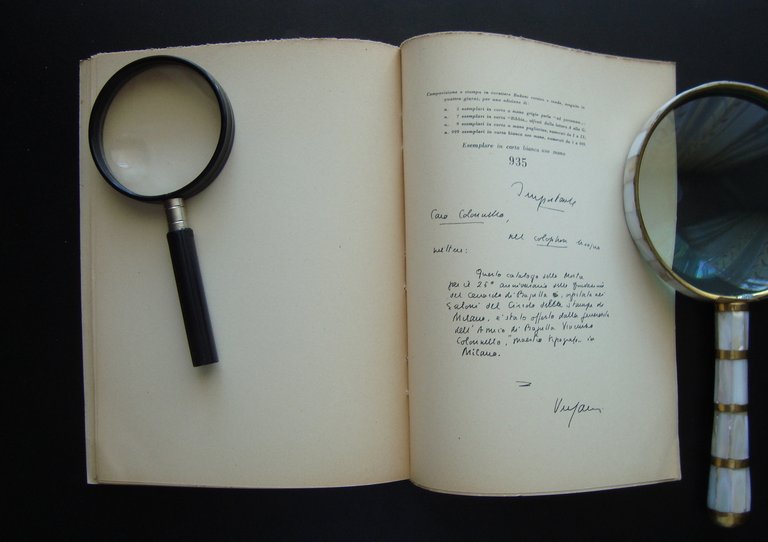 Composizione e stampa in carattere Bodoni corsivo e tondo, eseguita in
quattro giorni, per una edizione di:
n. 1 esemplari in carta a mano grigio perla
n. 7 esemplari in carta
n. 9 esemplari in carta a mano paglierino, numerati da I a
n. 999 esemplari in carta bianca uso mano, numerati da 1 a 999.
Esemplare in carta bianca uso mano
935
Importante
Caro Colonnello,
nel colophon bisogna
mettere:
Questo catalogo della Mostra
per il 25° anniversario della fondazione
del cenacolo di Bagutta, ospitata nei
Saloni del Circolo della Stampa di
Milano, è stato offerto dalla generosità
dell'Amico di Bagutta Vincenzo
Colonnello, "maestro tipografo" in
Milano.